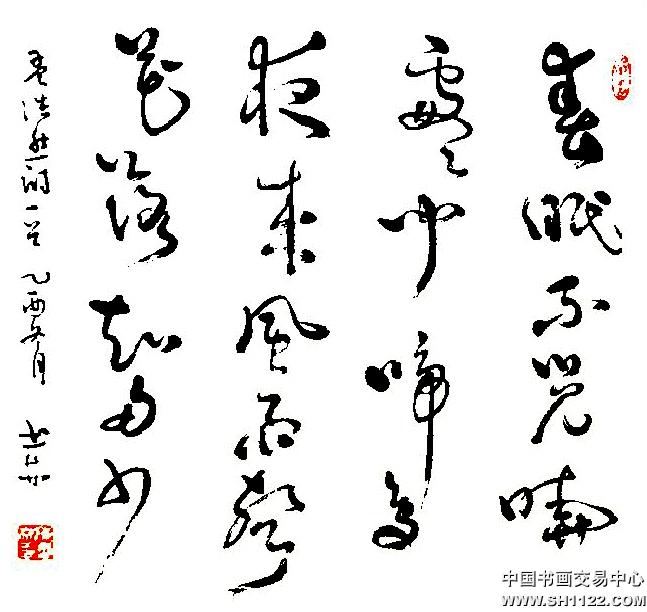 春眠不觉晓
处处闻啼鸟
夜来风雨声
花落知多少
孟浩然诗一首 乙酉冬月
中国书画交易中心
www.SH1122.com